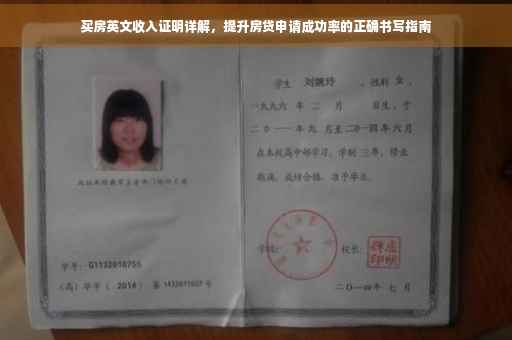 买房英文收入证明详解，提升房贷申请成功率的正确书写指南
学生 刘婉玲 ，性别 女 ，
一九九六 年 二 月 日生，于
二〇一一年九 月至二〇一四年六月
在本校高中部学习，学制 三年，修业
期满，成绩合格，准予毕业。
学号：G1132010755
（高）毕字（ 2014 ）第 1432011027 号
学校： 校长：
二〇一四年 七 月